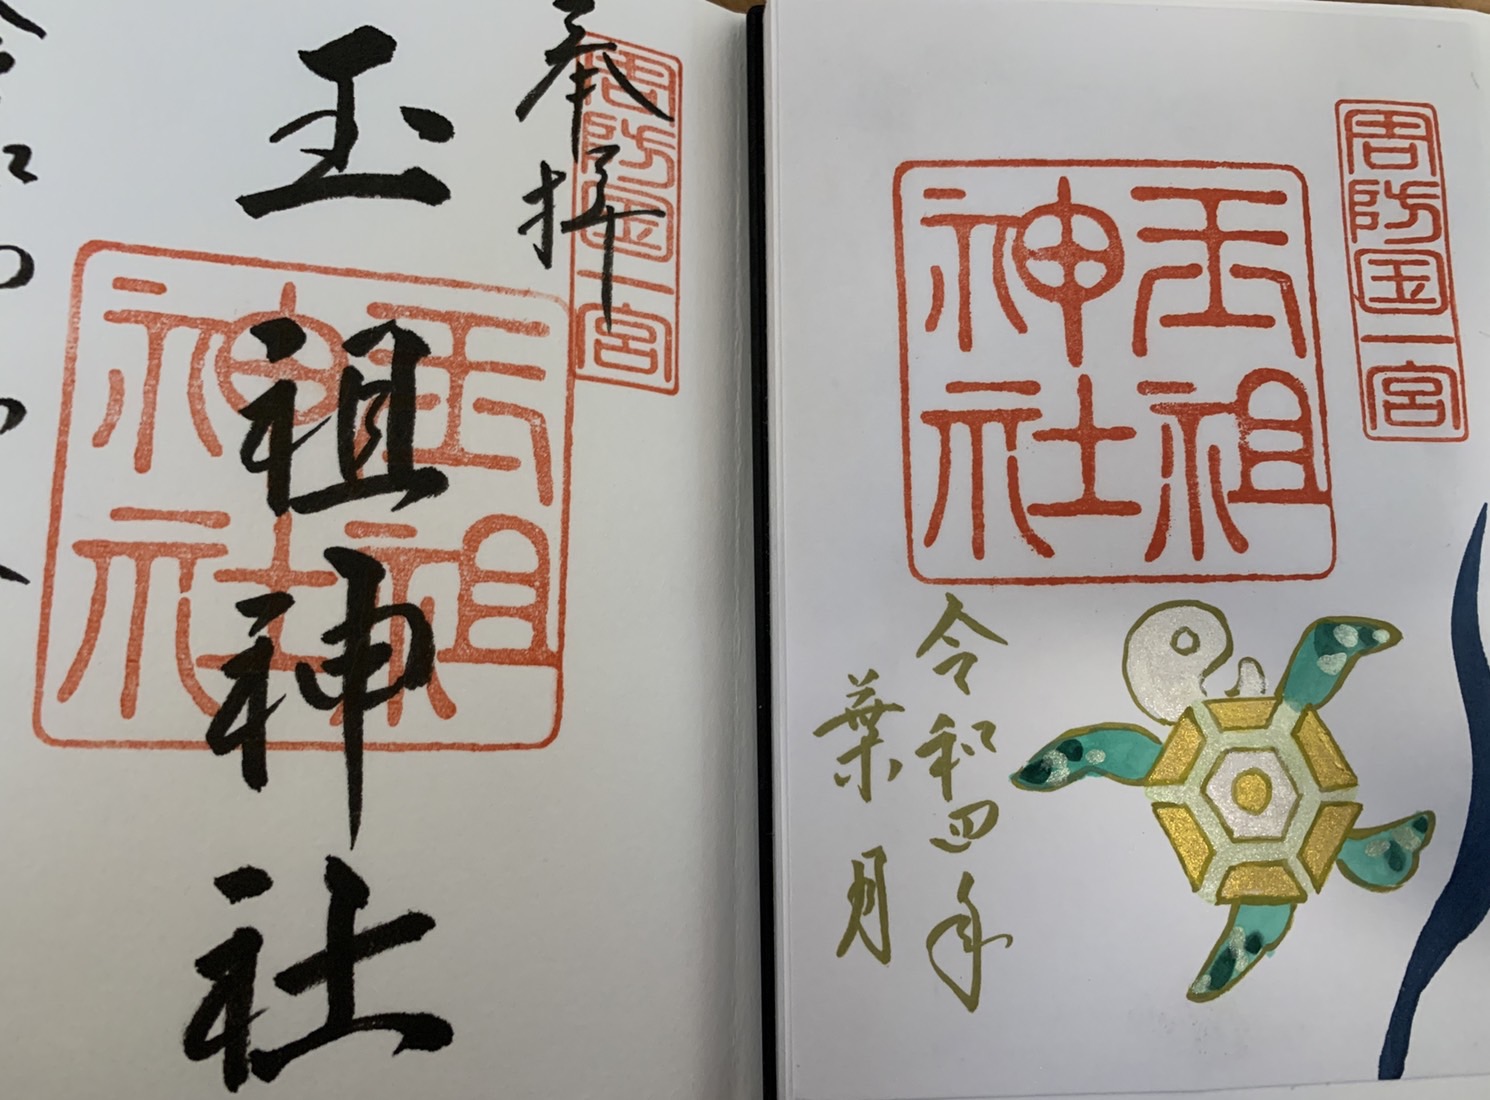 奉拝
周防国一宮
玉祖神社
玉祖
神社
周防国一宮
玉祖
神社
令和四年
葉月